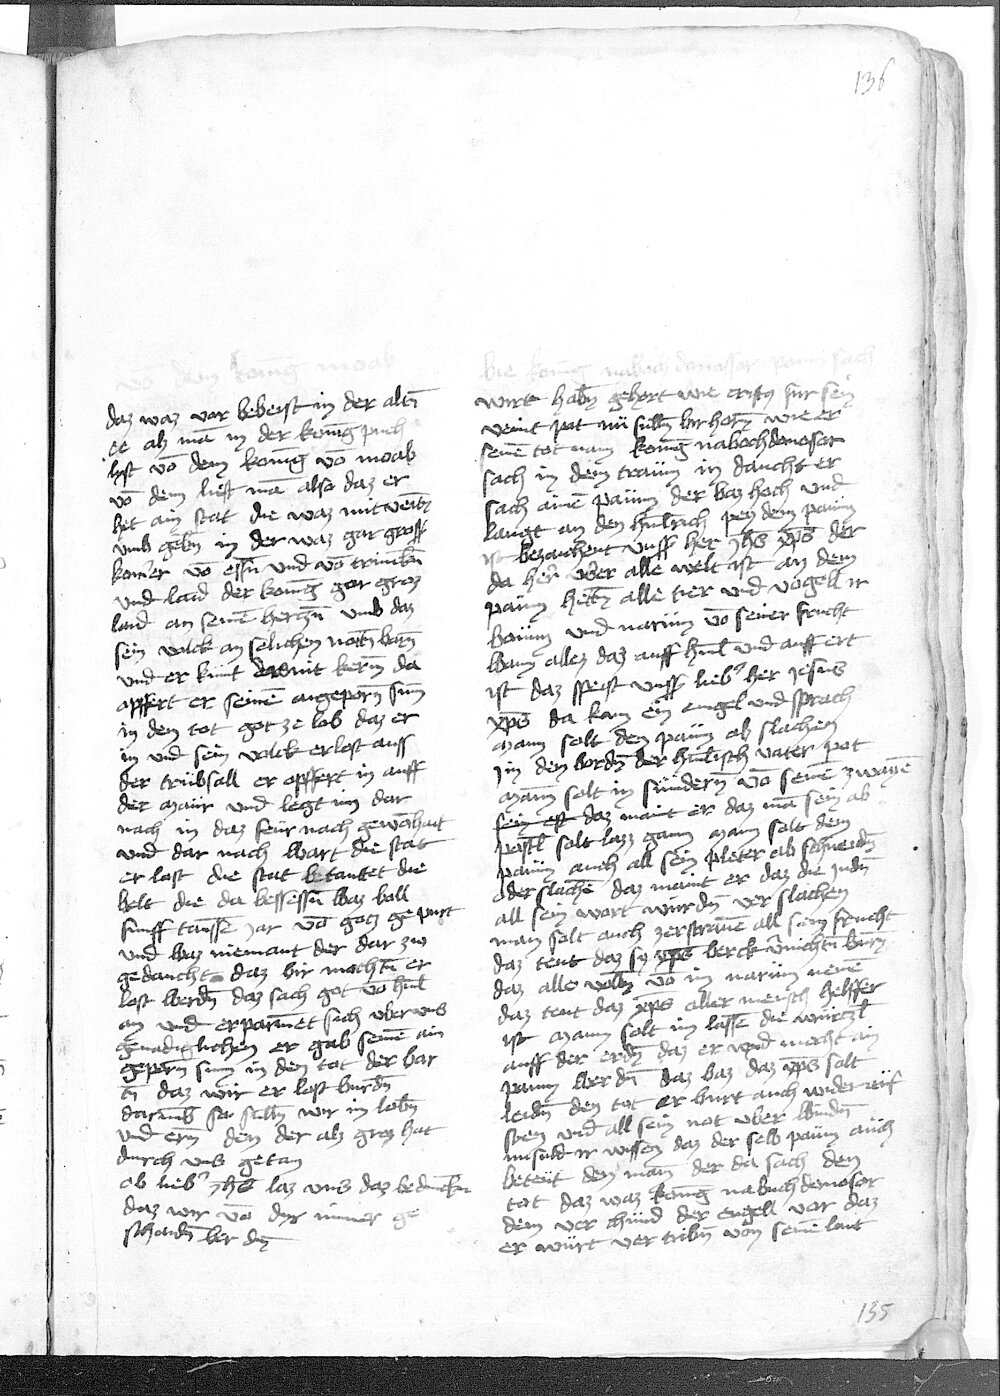 136
vō dem konig moab
daz waz vor beweist in der altn̄
ee alz mā in der konig puch
list vō dem konig vō moab
vō dem list mā also daz er
het ain stat die waz mit veintn̄
vmb gebn̄ in der waz gar gross
komer vō essn̄ vnd vō trinckn̄
vnd laid der konig gar groz
laid an seinē herczn̄ vmb daz
sein volck an solichen notn̄ warn̄
vnd er kunt da mit kern̄ da
opffert er seinē angeporn̄ sun̄
in den tot got ze lob daz er
in vnd sein volck erlost auss
der trübsall er opffert in auff
der maür vnd legt im dar
nach in daz feür nach gewonhait
vnd dar nach wart die stat
er lost die stat betautet die
welt die da besessn̄ waz woll
fünff tausē jar vō gotz gepurt
vnd waz niemant der dar zw
gedaucht daz wir mochtn̄ er
lost werdn̄ daz sach got vō himl
an vnd erparmet sich vber vns
genadiglichen er gab seinē ain
geporn sun in den tot der war
tn̄ daz wir er lost wurdn̄
darumb so sulln̄ wir in lobn̄
vnd ern̄ den der alz groz hat
durch vns getan
ob lieb' jhs laz vns daz bedenckn̄
daz wir vō dir nimer ge
schaidn̄ werdn̄
wie konig nabuchdonossor pawm sach
wirt habn̄ gehort wie cristus für sein
veint pat nū sulln̄ wir horn̄ wie er
seinē tot nam konig nabochdonosor
sach in dem traum in daucht er
sach ainē paum der waz hoch vnd
langt an den himlrich pey dem paum
ist bezaichent vnss her jhs xp̄s der
da her vber alle welt ist an dem
paum hettn̄ alle tier vnd vogell ir
wonūn vnd narūn vō seiner frucht
wann allez daz auff himl vnd auff ert
ist daz speist vnss lieb' her jesus
xp̄s da kam ein engel vnd sprach
mann solt den paum ab slachen
in den wordn̄ der himlisch vater pot
mann solt in sündern̄ vō seinē zwaÿē
daz maint er daz mā sein ab
postl solt lazz gann mann solt dem
paum auch all sein pleter ab schneidn̄
oder slachē daz maint er daz die judn̄
all sein wort würdn̄ ver slachen
man solt auch zerstrawē all sein frucht
daz teut daz sÿ xp̄s werck v'nichtn̄ wurn̄
daz alle volln̄ vō im narūn nemē
daz teut daz xp̄s aller mensch helffer
ist mann solt im lassē die wurczl
auff der erdn̄ daz er wid mocht ain
paum werdn̄ daz waz daz xp̄s solt
leidn̄ den tot er wurt auch wider auf
sten vnd all sein not vber windn̄
nu sult ir wissen daz der selb paum auch
beteüt den man der da sach den
tot daz waz konig nabuchdonosor
dem ver chünd der engell vor daz
er würt ver tribn̄ von seinē lant
135